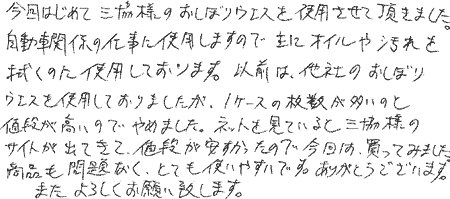 今回はじめて三協様のおしぼりウエスを使用させて頂きました。
自動車関係の仕事に使用しますので主にオイルや汚れを
拭くのに使用しております。以前は、他社のおしぼり
ウエスを使用しておりましたが、1ケースの枚数が多いのと
値段が高いのでやめました。ネットを見ていると三協様の
サイトが出てきて、値段が安すかったので今回は、買ってみました。
商品も問題なく、とても使いやすいです。ありがとうございます。
またよろしくお願い致します。